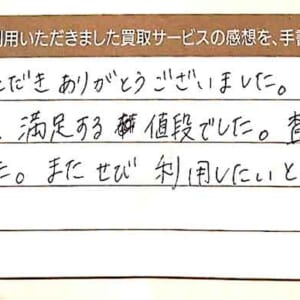 用いただきました買取サービスの感想を、手
だき ありがとうございました。
満足する 値段でした。
た。また ぜひ 利用したいと